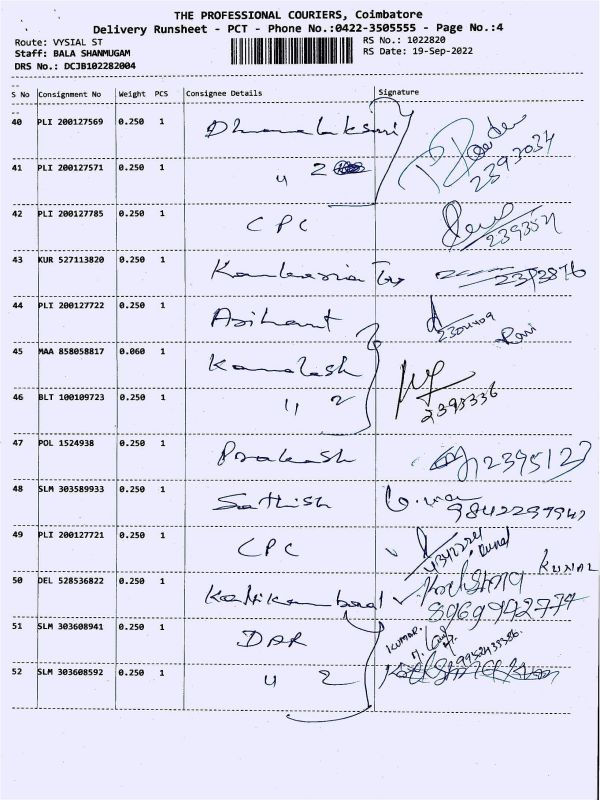 THE PROFESSIONAL COURIERS, Coimbatore
Delivery Runsheet - PCT - Phone No.:0422-3505555 - Page No.:4
Route: VYSIAL ST
RS No.: 1022820
Staff: BALA SHANMUGAM
RS Date: 19-Sep-2022
DRS No.: DCJB102282004
S No Consignment No Weight PCS Consignee Details Signature
40 PLI 200127569 0.250 1 Dhanalaksmi
41 PLI 200127571 0.250 1 u 2 2393034
42 PLI 200127785 0.250 1 CPC
43 KUR 527113820 0.250 1
44 PLI 200127722 0.250 1 Arihant
Ravi
45 MAA 858058817 0.060 1 Kamalesh
46 BLT 100109723 0.250 1 u 2 2395336
47 POL 1524938 0.250 1 Prakash
48 SLM 303589933 0.250 1 Sathish
49 PLI 200127721 0.250 1 CPC Kunal
KUNAL
50 DEL 528536822 0.250 1 8969942774
51 SLM 303608941 0.250 1 DAR KUMAR.
52 SLM 303608592 0.250 1 u 2